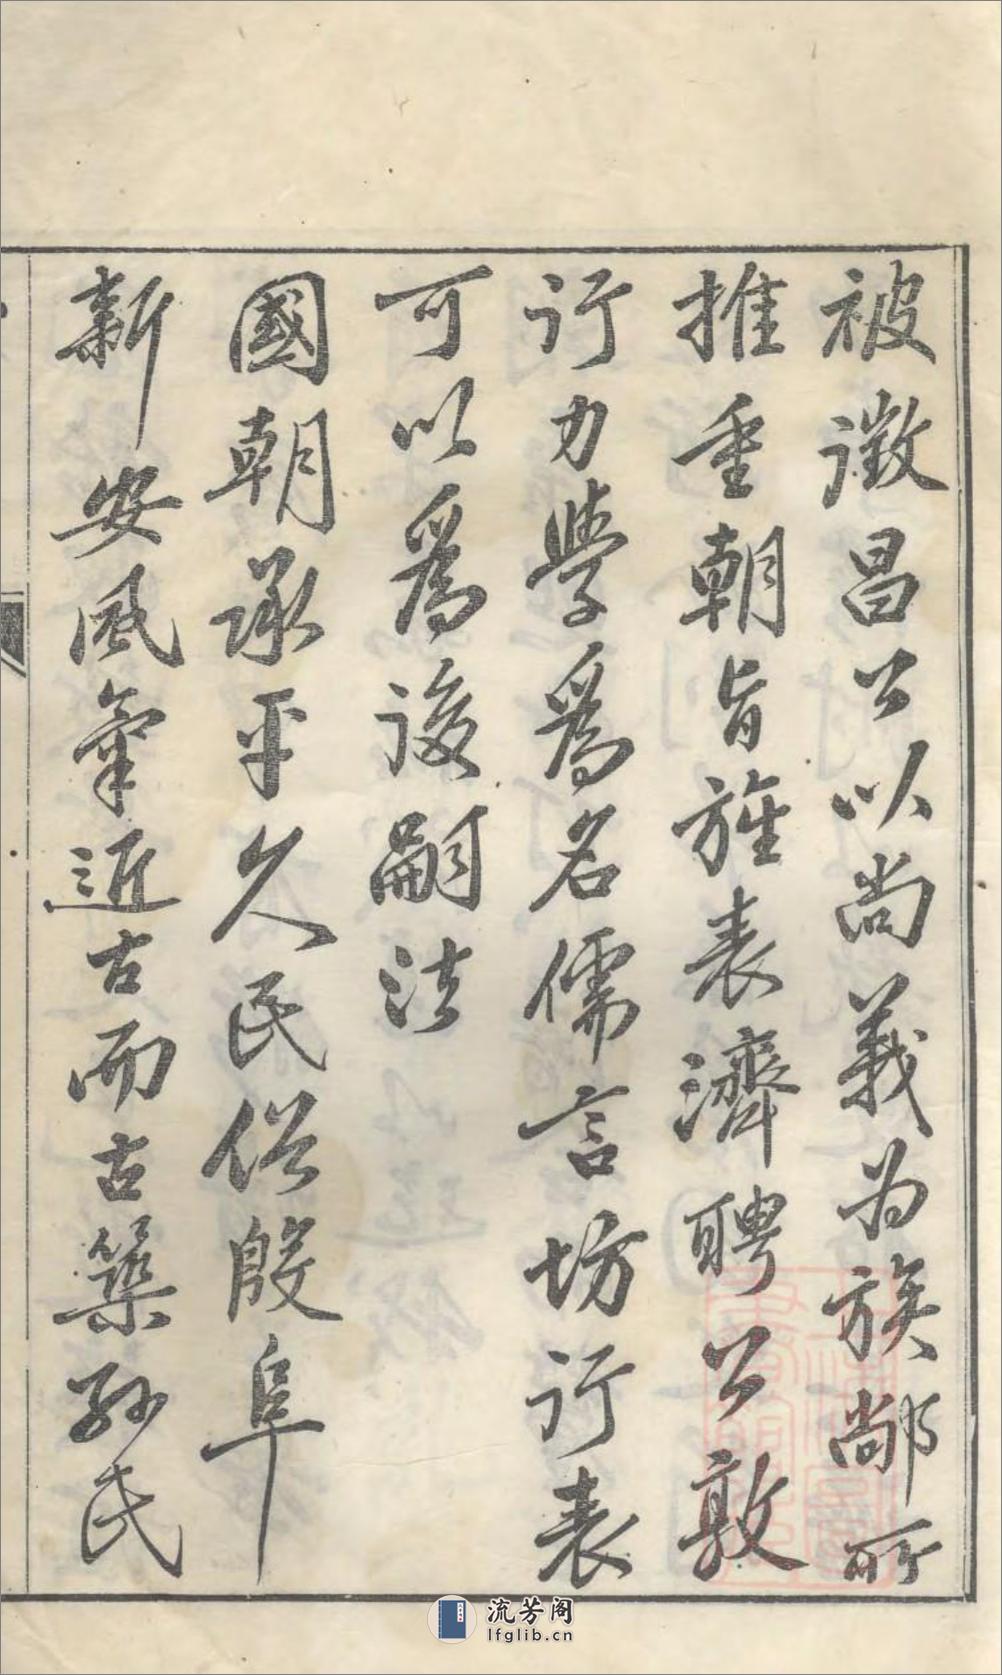 被徵昌公以尚義为族鄰所
推重朝旨旌表濟聘公敦
行力學爲名儒言坊行表
可以爲後嗣法
國朝承平久民俗殷阜
新安風氣近古而古築孙氏
流芳阁
lfglib.cn